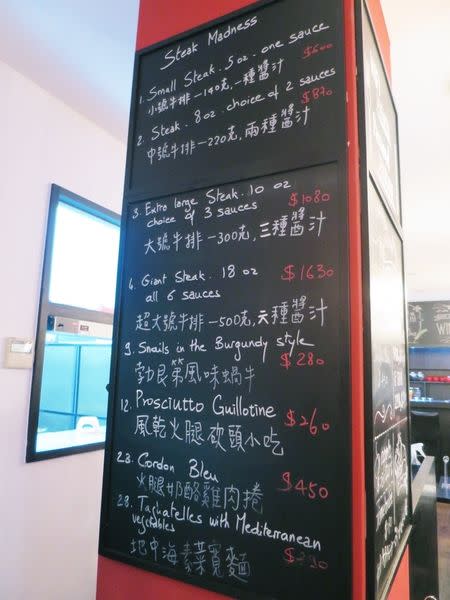 Steak Madness
1. Small Steak. 5 oz. one sauce $600
小號牛排-140克,一種醬汁
2. Steak. 8 oz. choice of 2 sauces $870
中號牛排-220克,兩種醬汁
3. Extra large Steak. 10 oz $1080
choice of 3 sauces
大號牛排-300克,三種醬汁
4. Giant Steak. 18 oz $1630
all 6 sauces
超大號牛排-500克,六種醬汁
9. Snails in the Burgundy style $280
勃艮第風味蝸牛
12. Prosciutto Guillotine $260
風乾火腿砍頭小吃
23. Cordon Bleu $450
火腿奶酪雞肉捲
28. Tagliatelles with Mediterranean
vegetables
地中海素菜寬麵